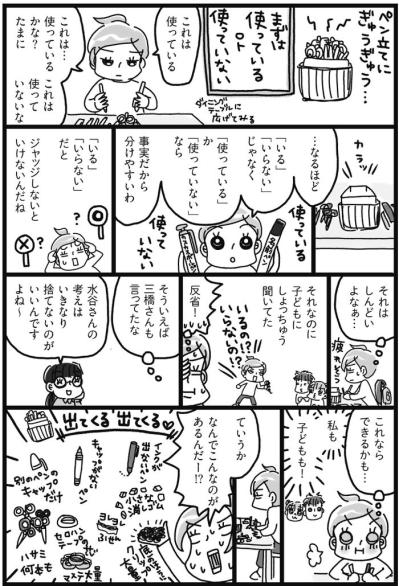 ペン立てに
ぎゅうぎゅう…
まずは
使っている
or
使っていない
ダイニング
テーブルに
広げてみる
これは
使っている
これは…
使っている
かな?
たまに
これは
使って
いないな
カラッ
…なるほど
「いる」
「いらない」
じゃなく
「使っている」
か
「使っていない」
なら
事実だから
分けやすいわ
使っている
使って
いない
「いる」
「いらない」
だと
ジャッジしないと
いけないんだね
それは
しんどい
よなぁ…
疲れそう
それなのに
子どもに
しょっちゅう
聞いてた
いるの!?
いらないの!?
反省!
そういえば
三橋さんも
言ってたな
水谷さんの
考えは
いきなり
捨てないのが
いいんです
よね~
これなら
できるかも…
私も
子どもも!
ていうか
なんでこんなのが
あるんだー!?
出てくる出てくる♡
インクが
出ないペン
キャップがない
ペン
別のペンの
キャップだけ
小さな
消しゴム
ヨレヨレ
ふせん
セロハン
テープの芯
ハサミ
何本も
マステ大量